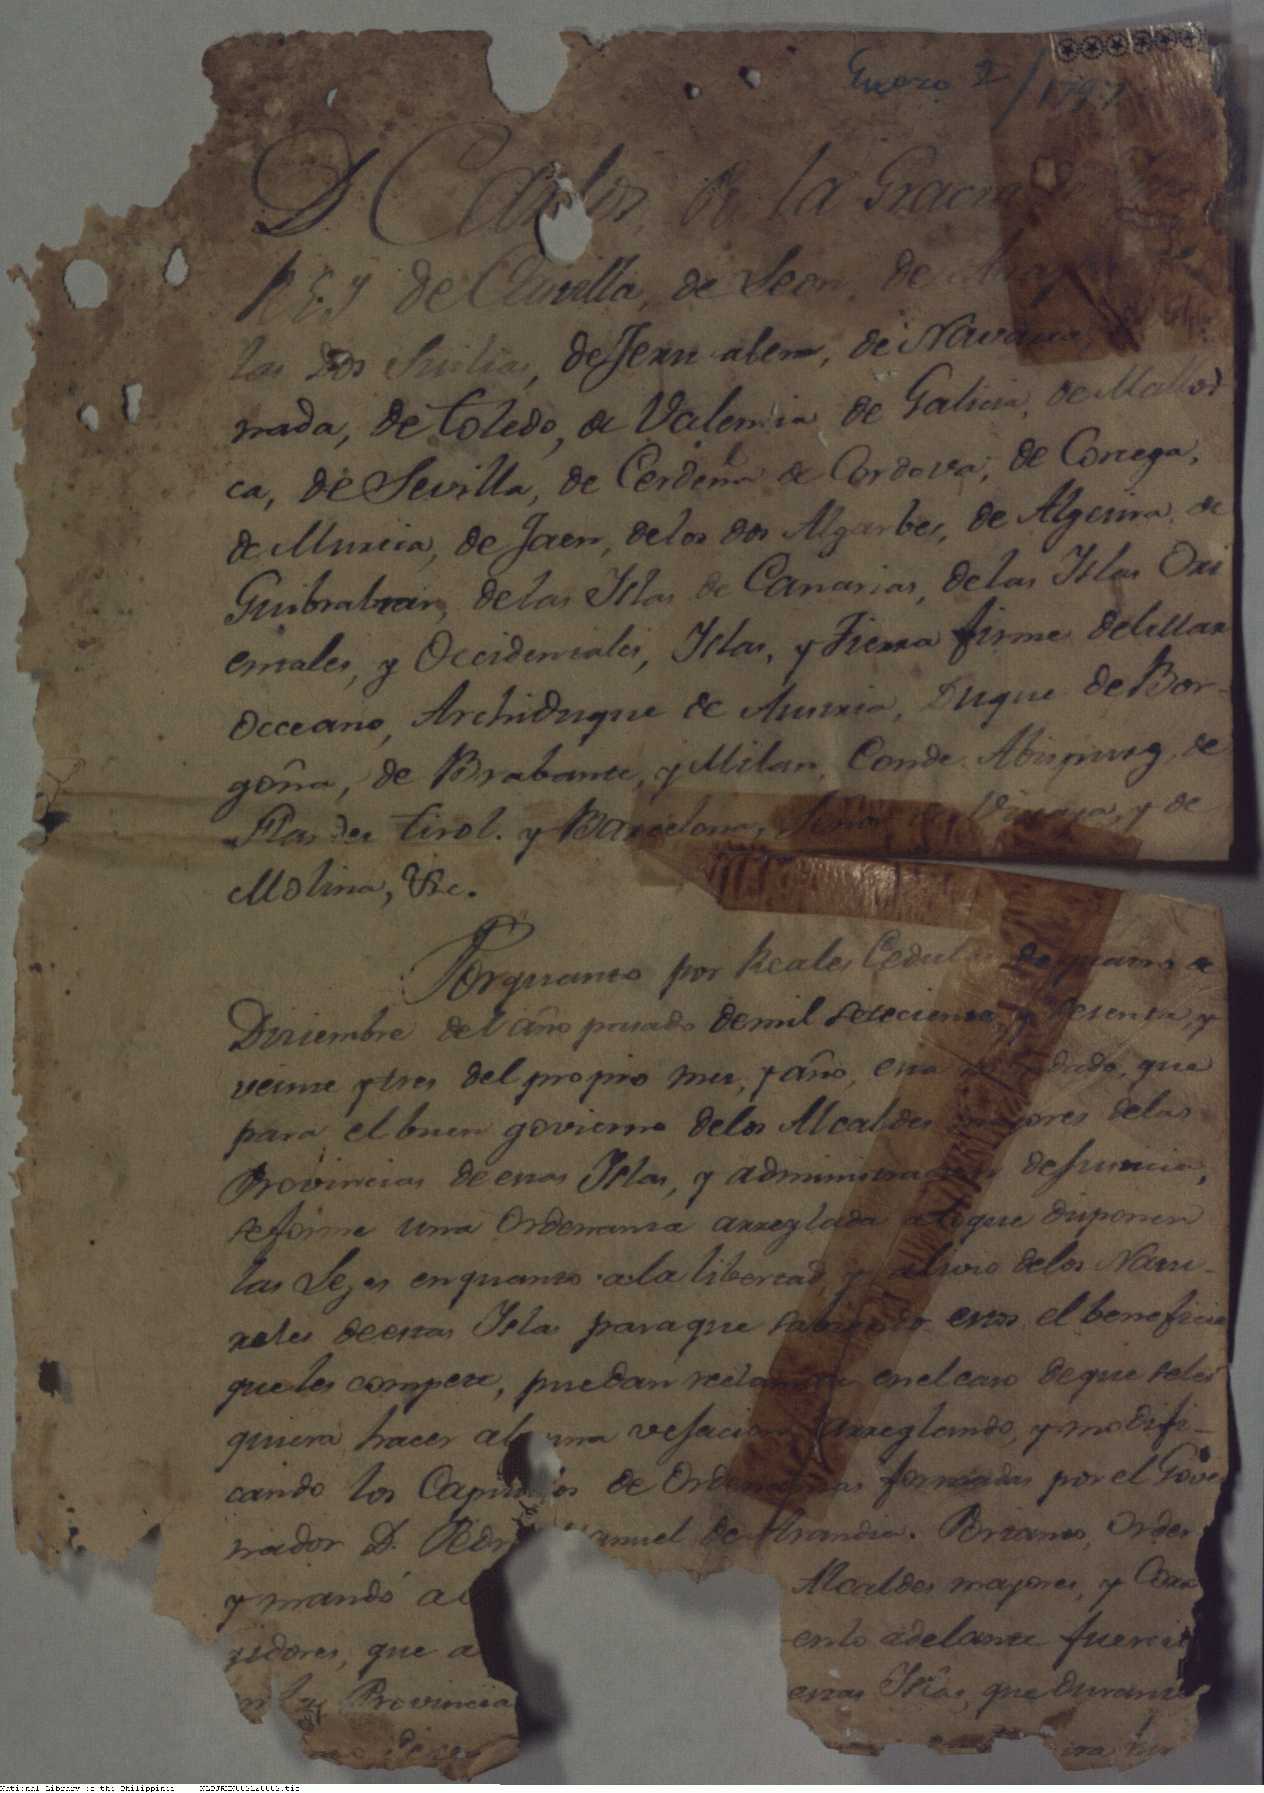 Enero 2/1797
D. Carlos de la Gracia de
REY de Castilla, de Leon, de
las Dos Sicilias, de Jerusalem, de Navarra,
nada, de Toledo, de Valencia de Galicia, de Mallor
ca, de Sevilla, de Cerdeña de Cordova, de Corcega,
de Murcia, de Jaen, delos dos Algarbes, de Algecira, de
Guibraltar, delas Islas de Canarias, delas Islas Ori
entales, y Occidentales, Islas, y Tierra firme delMar
Occeano, Archiduque de Austria, Duque de Bor-
goña, de Brabante, y Milan, Conde Abspurg, de
Flandes Tirol. y Barcelona, Señor de Viscaya, y de
Molina, &c.
Porquanto por Reales Cedulas de quatro de
Diciembre del año pasado demil setecientos, y sesenta, y
veinte y tres del propio mes, y año, esta que
para el buen govierno delos Alcaldes mayores delas
Provincias de estas Islas, y administracion deJusticia,
seforme una Ordenanza arreglada aloque disponen
las Leyes enquanto ala libertad, y alivio delos Natu-
rales deestas Islas paraque sabiendo estos el beneficio
queles compete, puedan reclamar enelcaso deque seles
quiera hacer alguna vejacion arreglando, y modifi-
cando los Capitulos de Ordenanzas formadas por el Gover
nador D. Pedro Manuel de Arandia. Portanto, Orden
y mandó a Alcaldes mayores, y Corre
gidores, que a ento adelante fueren
en las Provincia estas Islas, que durante
National Library of the Philippines